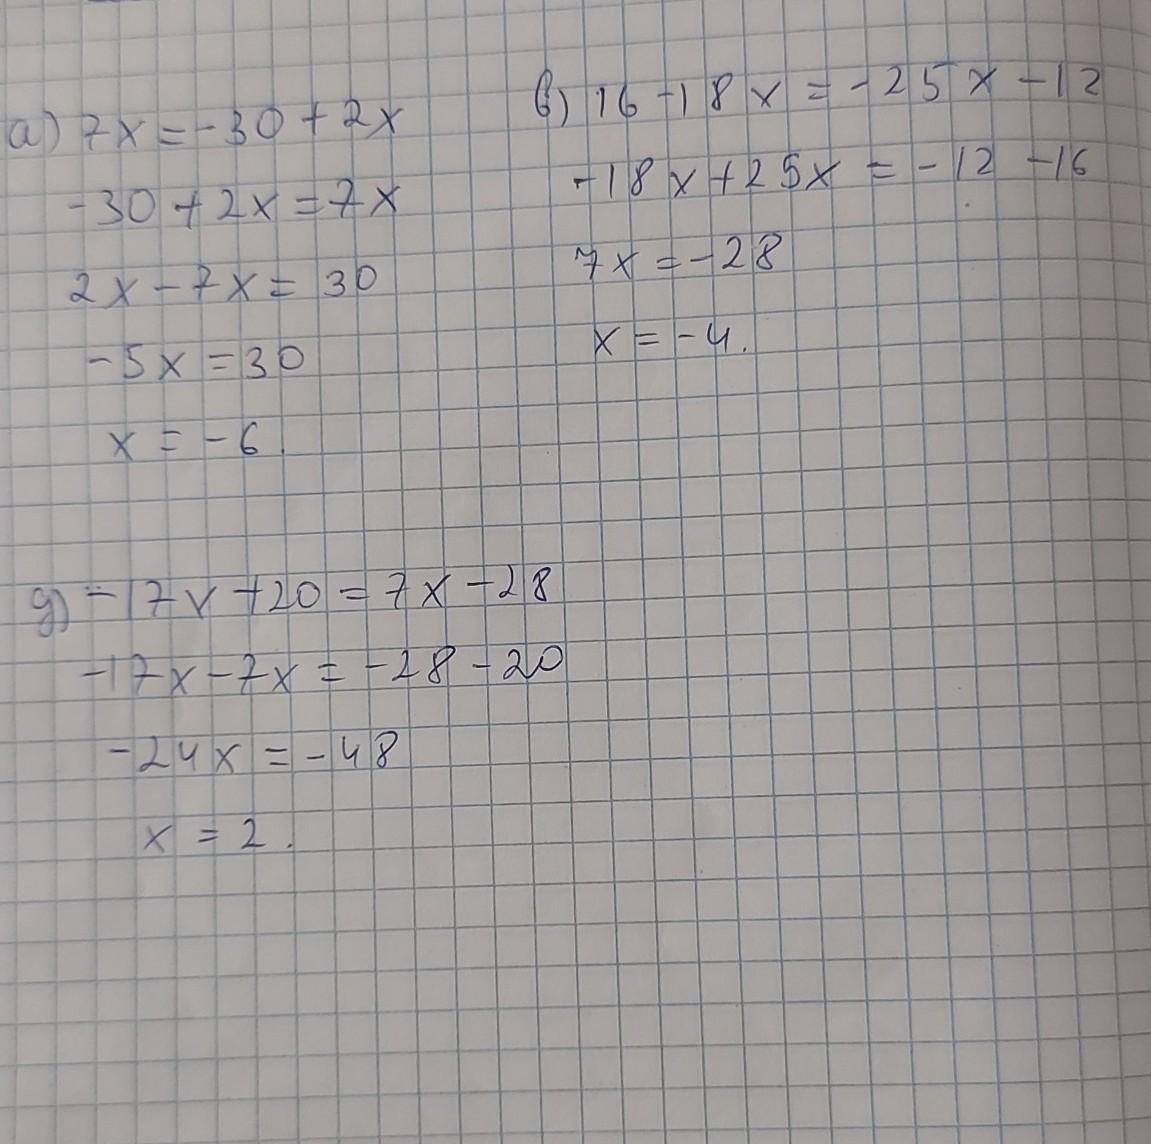 а) 7x = -30 + 2x
-30 + 2x = 7x
2x - 7x = 30
-5x = 30
x = -6
в) 16 - 18x = -25x - 12
-18x + 25x = -12 - 16
7x = -28
x = -4.
д) -17x + 20 = 7x - 28
-17x - 7x = -28 - 20
-24x = -48
x = 2.